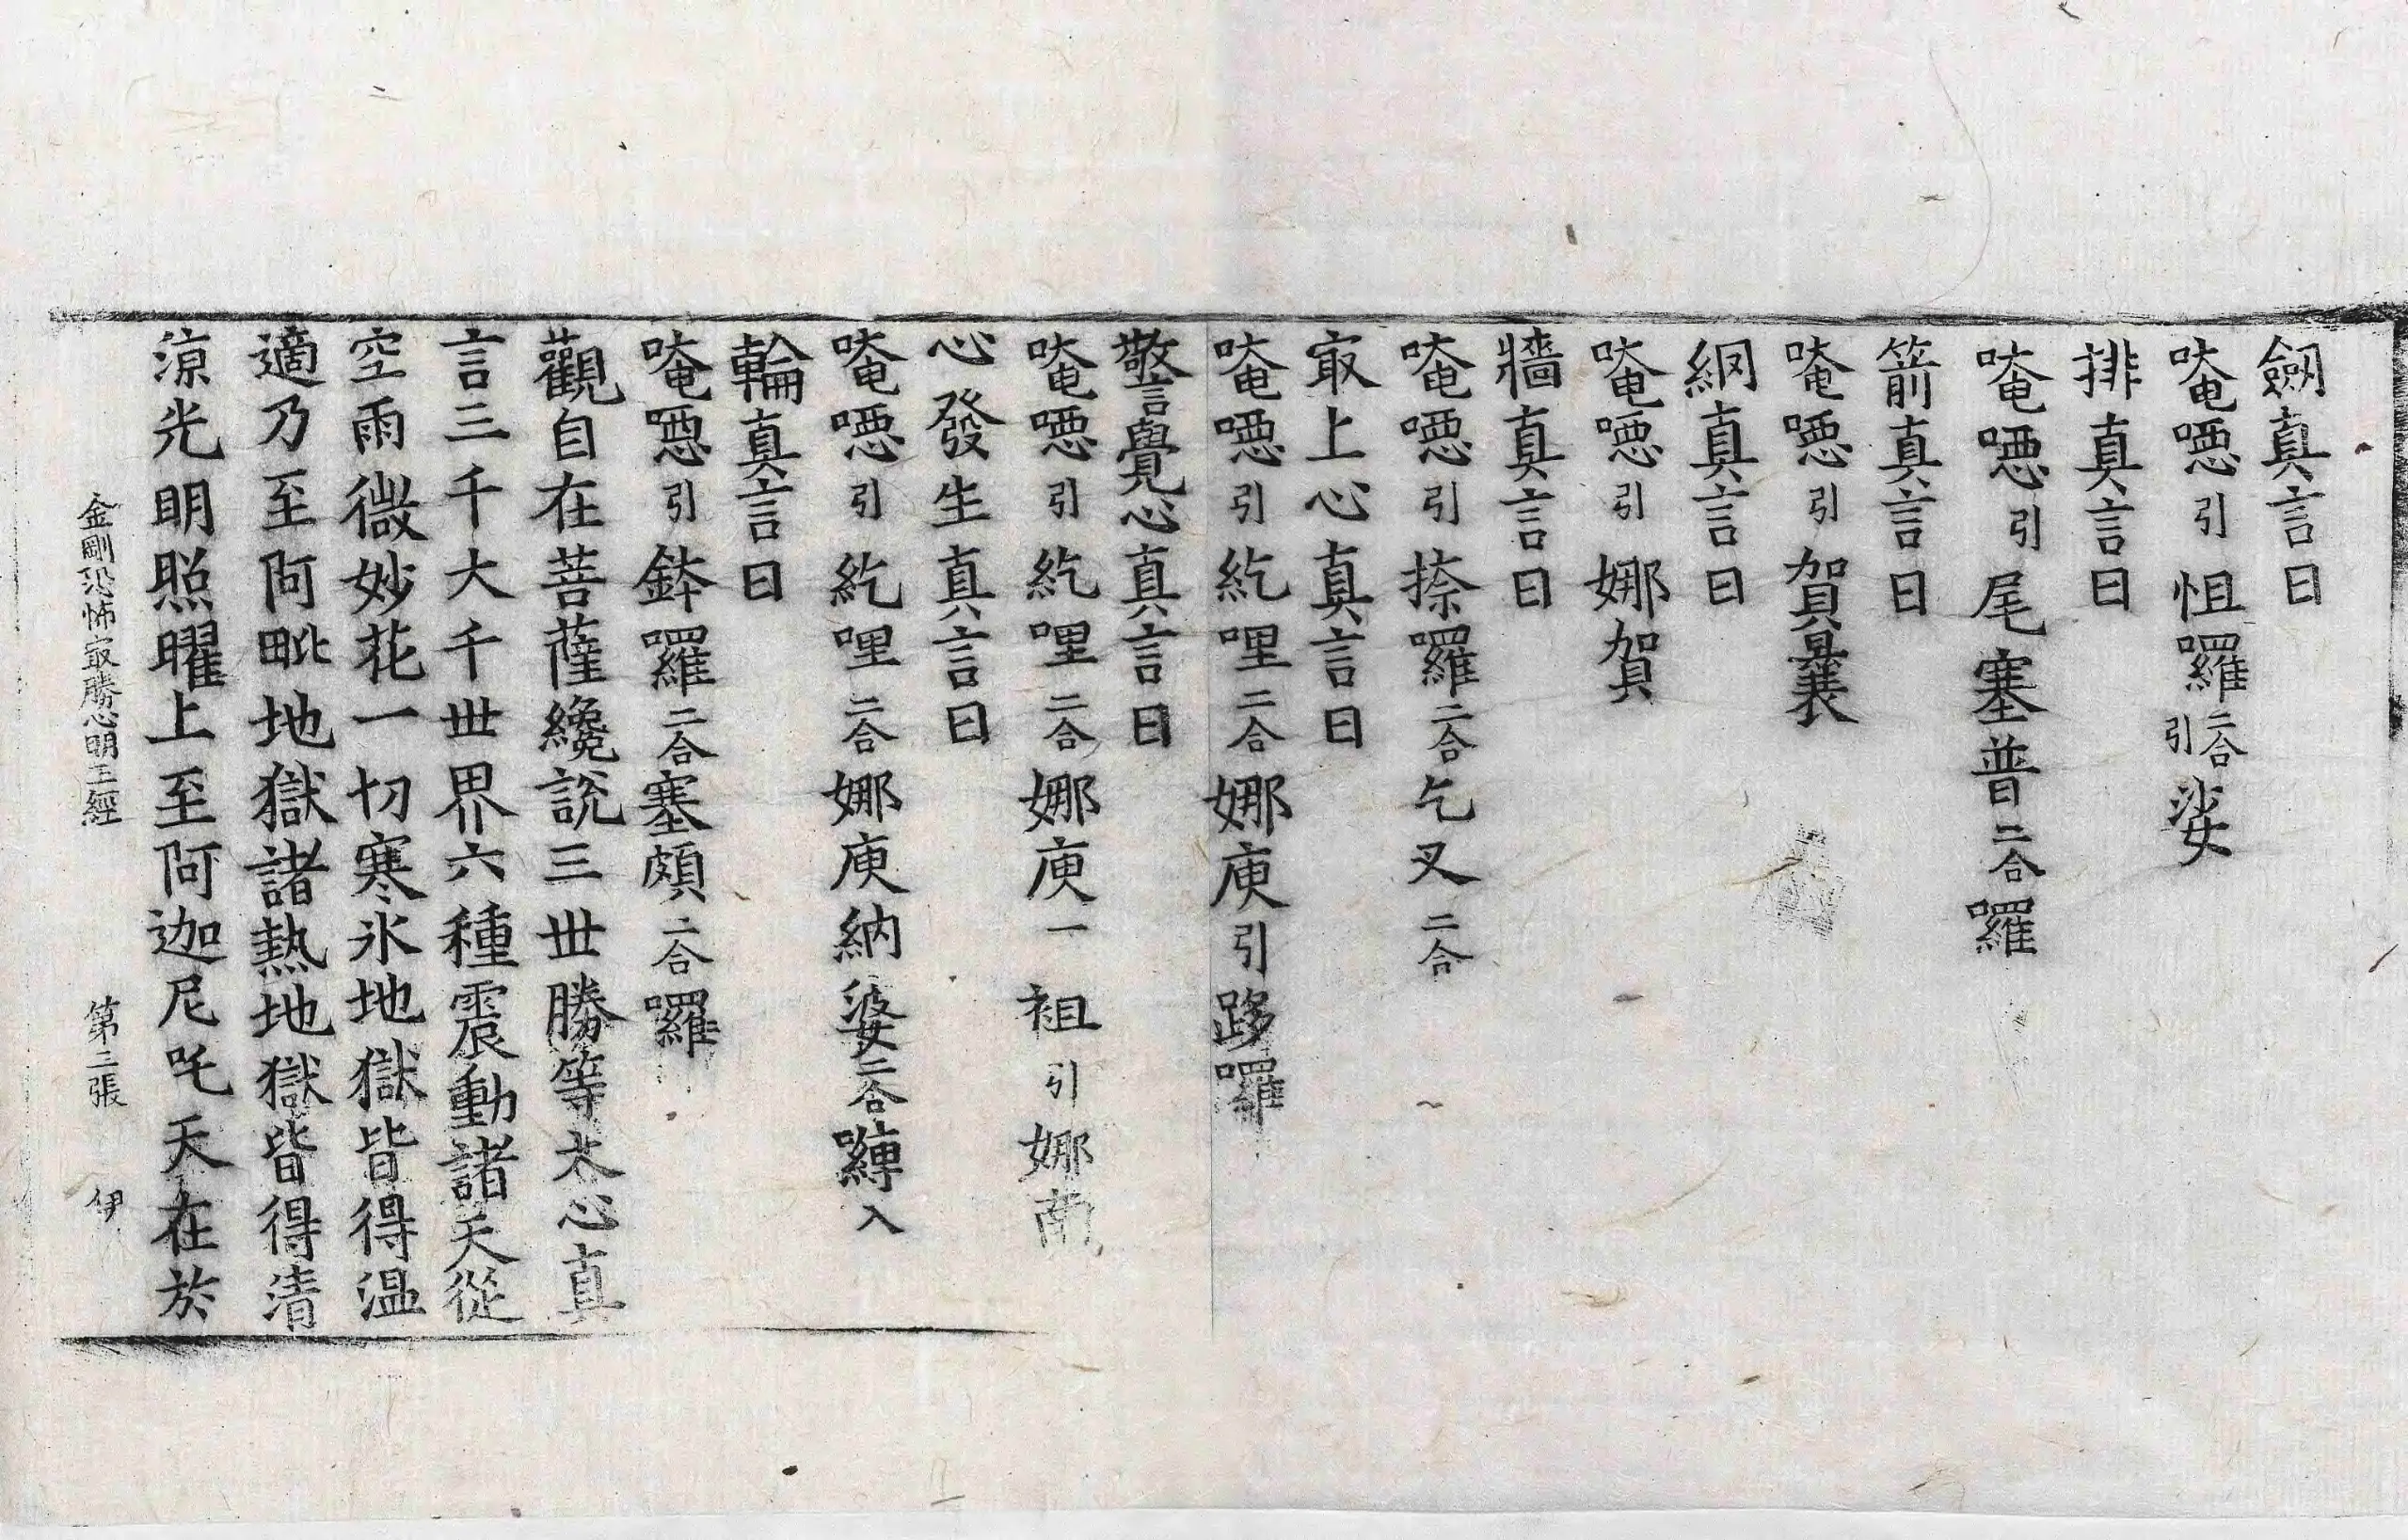 劒真言曰
唵𡅕引怚囉二合引娑
排真言曰
唵𡅕引尾塞普二合囉
箭真言曰
唵𡅕引賀曩
網真言曰
唵𡅕引娜賀
牆真言曰
唵𡅕引捺囉二合乞叉二合
㝡上心真言曰
唵𡅕引紇哩二合娜庾引跢囉
警覺心真言曰
唵𡅕引紇哩二合娜庾一祖引娜南
心發生真言曰
唵𡅕引紇哩二合娜庾納婆二合嚩入
輪真言曰
唵𡅕引鉢囉二合塞頗二合囉
觀自在菩薩纔說三世勝等大心真
言三千大千世界六種震動諸天從
空雨微妙花一切寒氷地獄皆得温
適乃至阿毗地獄諸熱地獄皆得清
涼光明照曜上至阿迦尼吒天在於
金剛恐怖㝡勝心明王經 第二張 伊